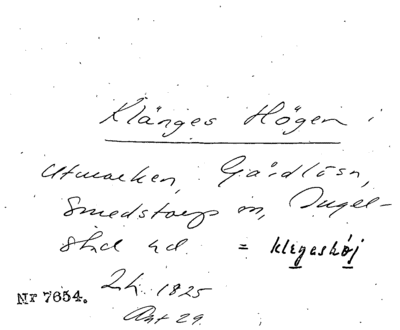 Klänges Högen i
utmarken, Gårdlösa,
Smedstorps sn, Ingel-
stad hd = klegeshöj
Lh. 1825
Akt 29.
Nr 7654.